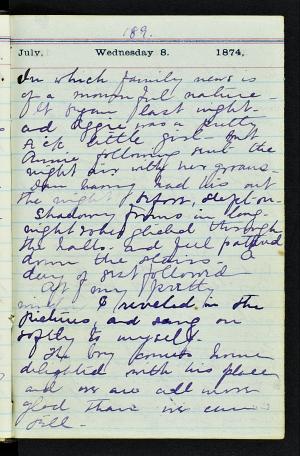 189.
July. Wednesday 8. 1874.
In which family news is
of a mournful nature.
It began last night.
and Aggie was a pretty
sick little girl. But
Annie following suit the
night air with her groans.
Dan having had his out
the night before, slept on.
Shadowy forms in long
night robes glided through
the halls. and feet pattered
down the stairs. A
day of rest followed
At my pretty
I reveled in the
pictures and sang on
softly to myself.
The boy comes home
delighted with his place
and we are all more
glad than we can
tell.